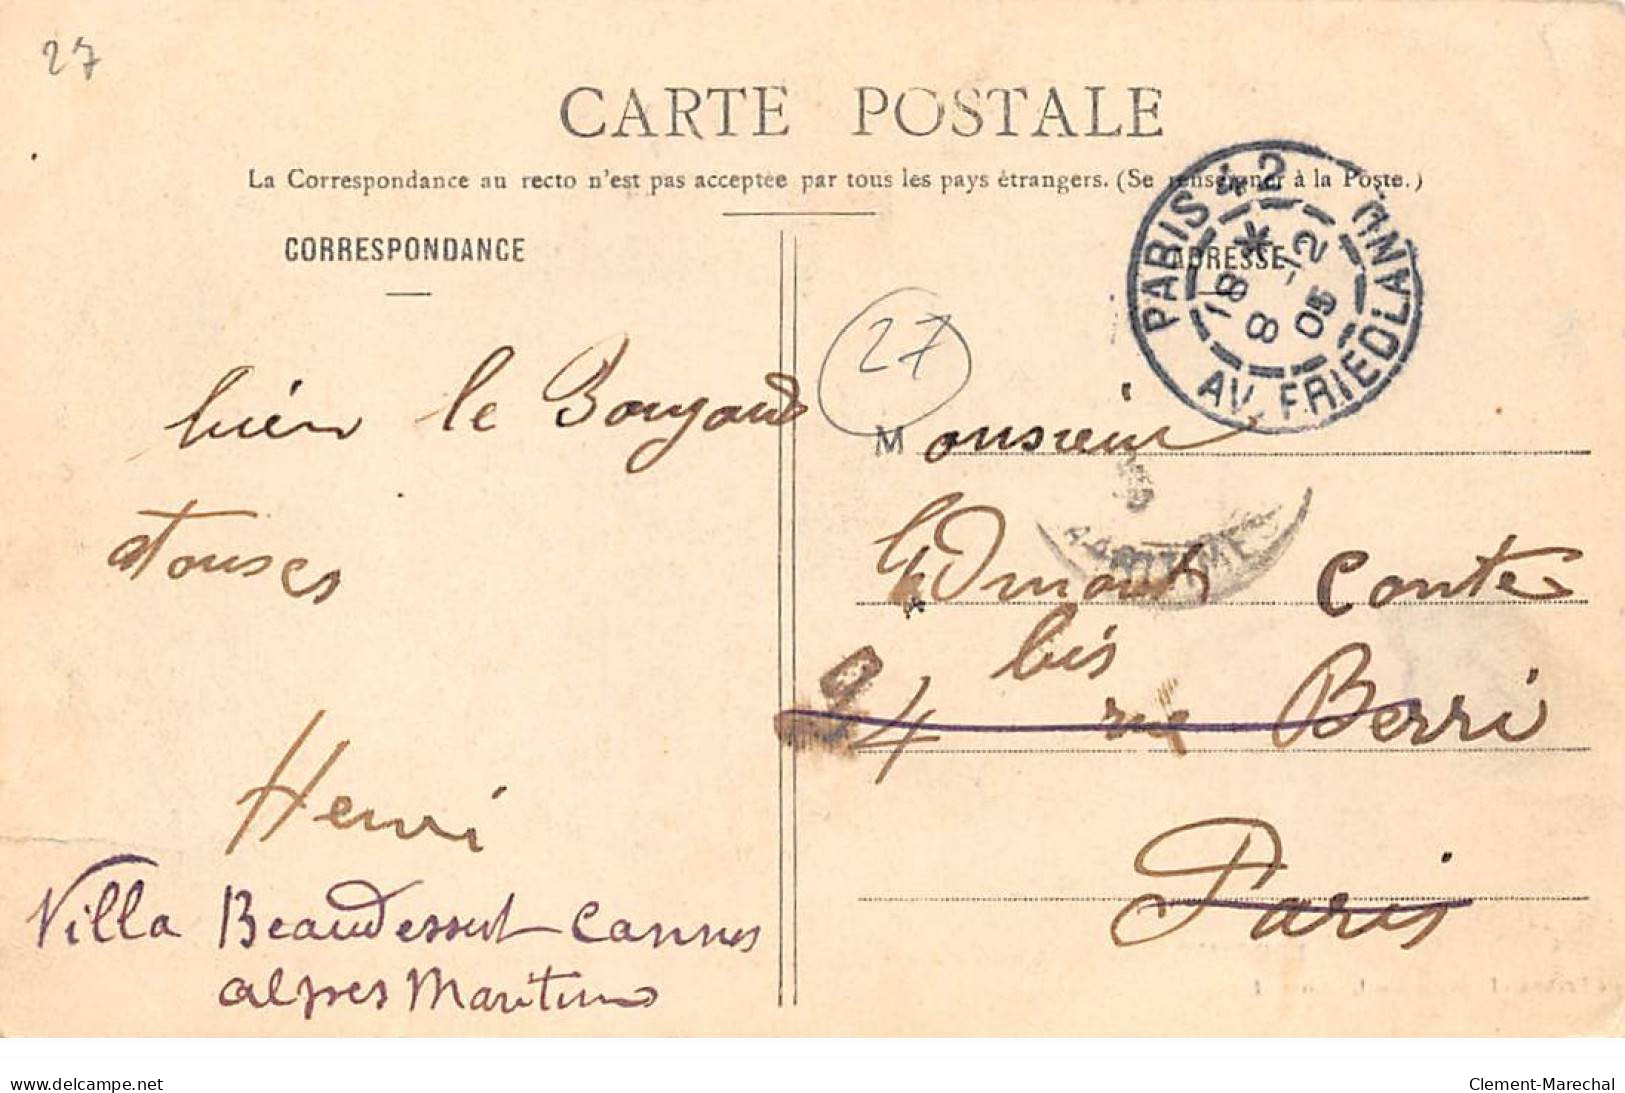 27
CARTE POSTALE
La Correspondance au recto n'est pas acceptée par tous les pays étrangers. (Se renseigner à la Poste.)
CORRESPONDANCE
ADRESSE
PARIS 42
AV. FRIEDLAND
18 *
8 -12
05
27
bien le Bonjour
a tous
Henri
Villa Beaudessert Cannes
alpes Maritimes
Monsieur
Edmont Conte
bis
4 rue Berri
Paris
MARITIMES
www.delcampe.net
Clement-Marechal